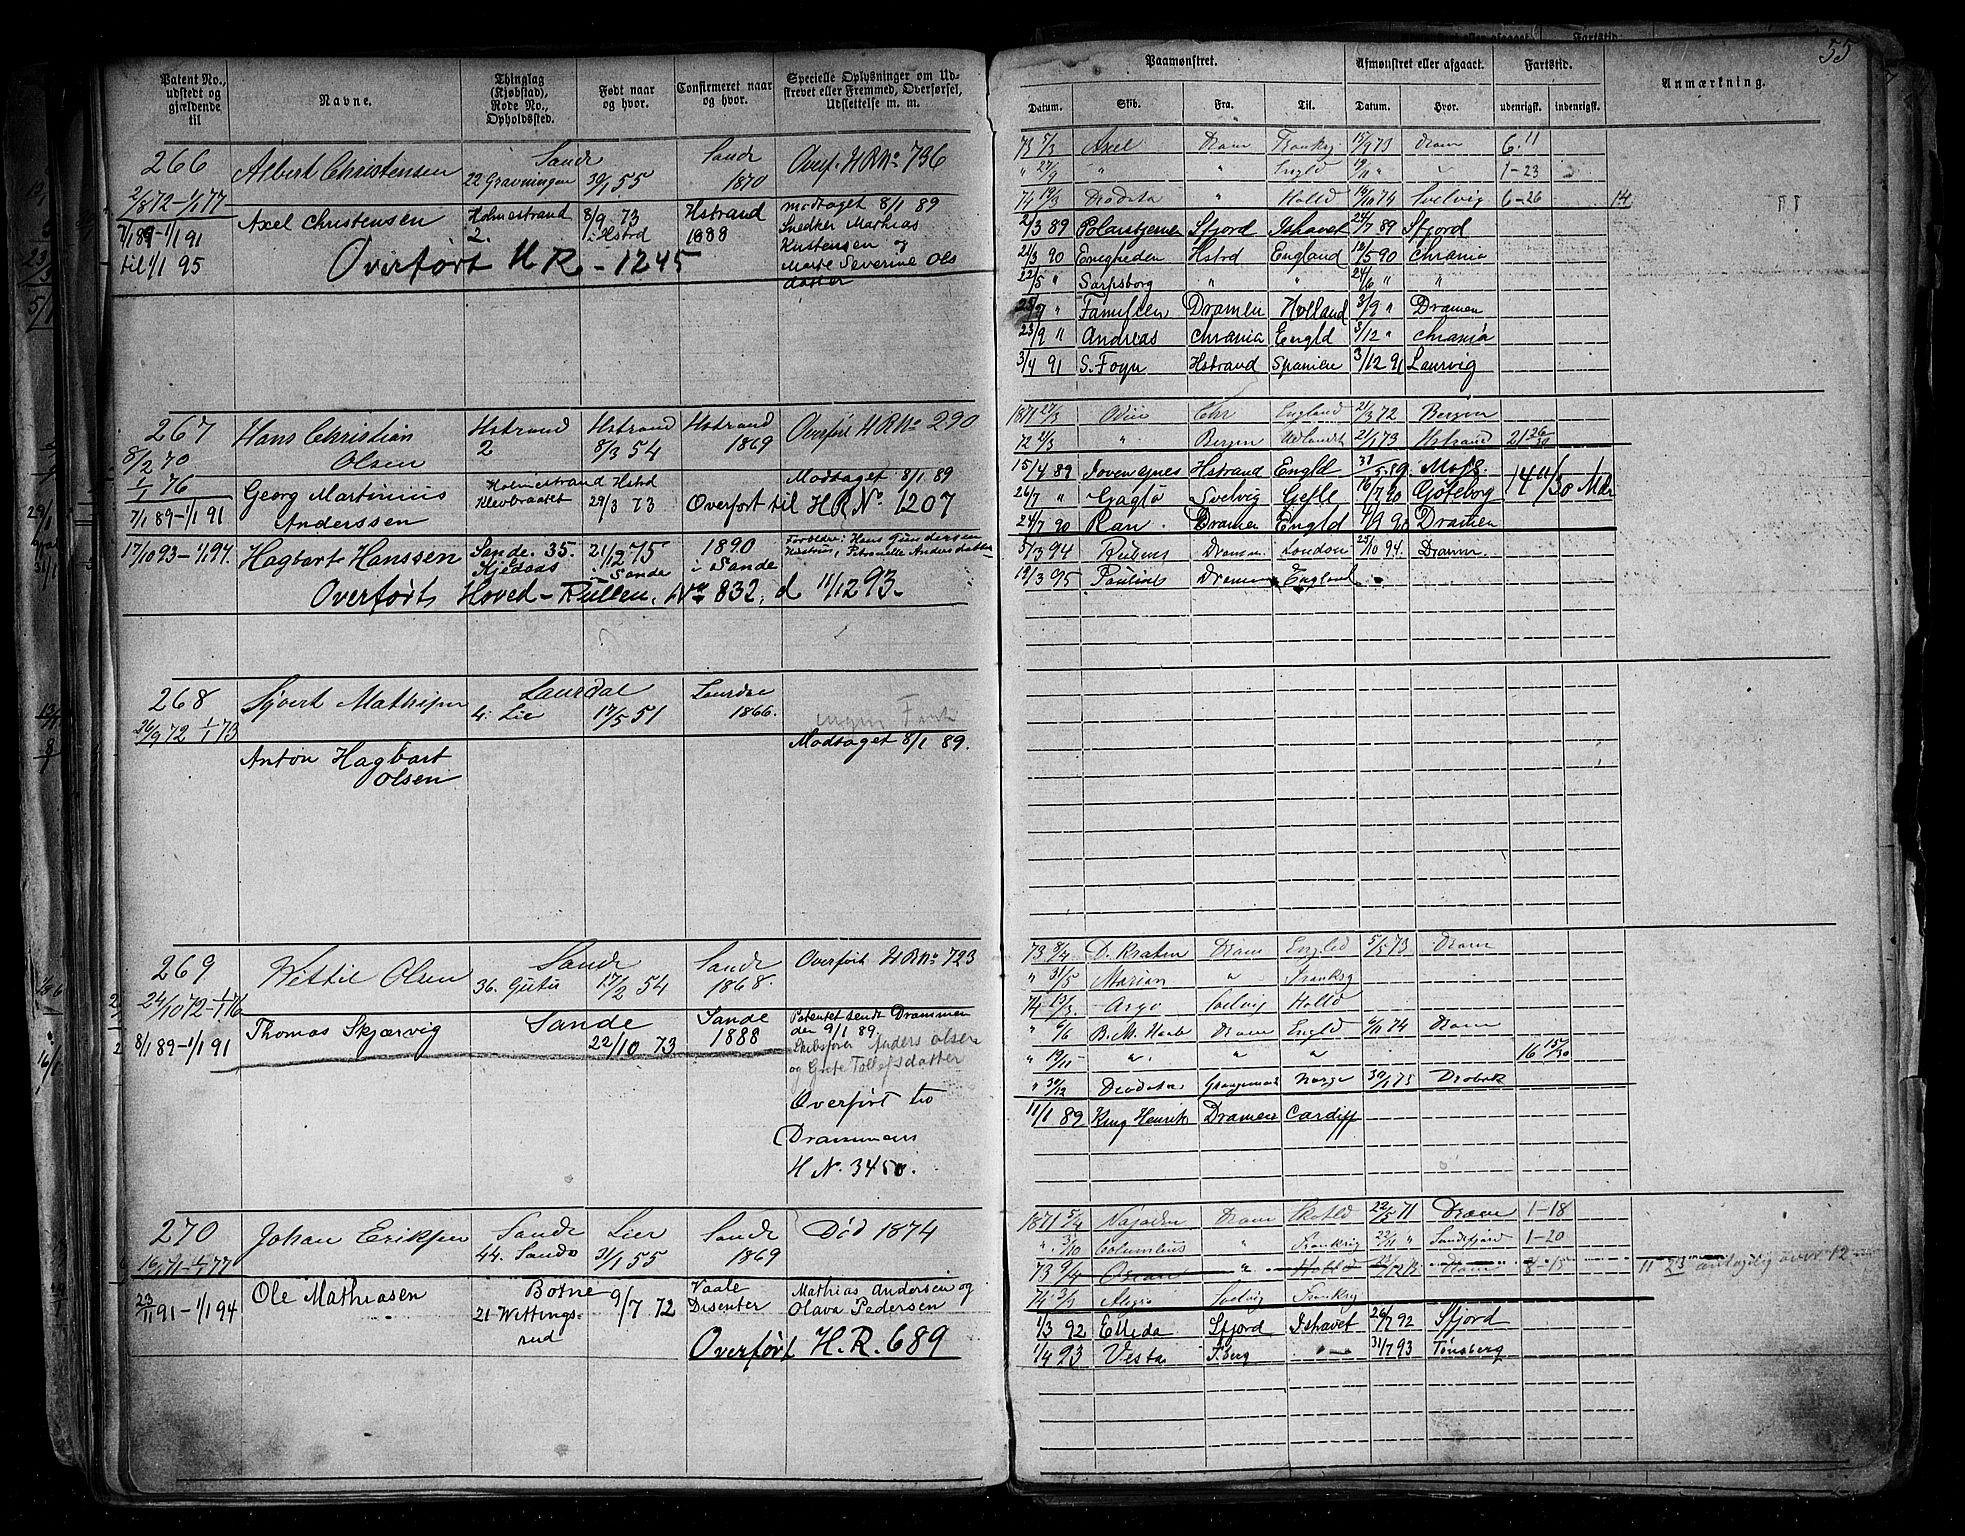 55
Patent No., udstedt og gjældende til
Navne.
Thinglag (Kjøbstad), Rode No., Opholdssted.
Født naar og hvor.
Confirmeret naar og hvor.
Specielle Oplysninger om Udskrevet eller Fremmed, Overførsel, Udslettelse m. m.
266 Albert Christensen Sande Sande Overf. H R No 736
2/8 72 – 1/1 77 22 Gravningen 30/1 55 1870
7/1 89 – 1/1 91 Axel Christensen Holmestrand 8/9 73 Hstrand modtaget 8/1 89
til 1/1 95 2. i Hstrd 1888 Snedker Mathias
Kristensen og
Overført H R – 1245 Marte Severine Ols
datter
267 Hans Christian Hstrand Hstrand Hstrand Overført H R No 290
8/2 70 Olsen 2 8/3 54 1869
1/1 76 Georg Martinius Holmestrand Hstd Modtaget 8/1 89
7/1 89 – 1/1 91 Anderssen 29/3 73 Overført til H R No. 1207
17/10 93 – 1/1 94. Hagbart Hanssen Sande. 35. 21/12 75 1890 Forældre: Hans Gundersen
i Sande i Sande
Overført Hoved-Rullen, No 832, d 11/12 93.
268 Sjvert Mathisen Laurdal Laurdal
26/9 72 1/1 73 4. Lie 17/5 51 1866.
Anton Hagbart Modtaget 8/1 89.
Olsen
269 Kittil Olsen Sande Sande Overført H R No 723
24/10 72 – 1/1 76 36. 17/2 54 1868.
8/1 89 – 1/1 91 Thomas Skjærvig Sande Sande Patentet sendt Drammen
22/10 73 1888 den 9/1 89.
Skibsfører Anders Olsen
og Grete Tollefsdatter
Overført til
Drammens
H N. 3450.
270 Johan Eriksen Sande Lier Sande Død 1874
16/1 71 – 1/1 77 44. Sando 31/1 55 1869
23/11 91 – 1/1 94 Ole Mathiasen Botne 9/7 72 Vaale Mathias Andersen og
21 Wettings- Disenter Olava Pedersen
rud Overført H. R. 689
Paamønstret. Afmønstret eller afgaaet. Fartstid. Anmærkning.
Datum. Skib. Fra. Til. Datum. Hvor. udenrigsk. indenrigsk.
73 5/3 Axel Dram Frankrg 15/9 73 Dram 6. 11
" 27/9 " " Engld 19/11 " " 1–23
74 19/3 Holld 19/10 74 Svelvig 6–26 14
2/3 89 Polarstjernen Sfjord Ishavet 24/7 89 Sfjord
21/3 90 Enigheden Hstrd England 12/5 90 Chrania
22/5 " Sarpsborg " " 24/6 " "
25/7 " Familien Dramen Holland 3/9 " Dramen
23/9 " Andreas Chrania Engld 3/12 " Chrania
3/4 91 S. Foyn Hstrand Spanien 3/12 91 Laurvig
1871 27/3 Odin Chr England 21/3 72 Bergen
72 2/3 " Bergen Udlandet 2/1 73 Hstrand 21 26/30
15/4 89 Hstrand Engld 31/5 89 Moss. 14 11/30 Mdr
26/7 " Svelvig Gefle 16/7 90 Göteborg
24/7 90 Ran. Dramen Engld 4/9 90 Dramen
5/3 94 Rubens Dramm. London 25/10 94. Dramm.
19/3 95 Pauline Dramm England
73 8/4 D. Kraten Dram Engld 5/5 73 Dram
" 31/5 Marian " Frankrg
74 13/3 Argo Svelvig Holld
" 6/6 B. M. Dram Engld 6/11 74 Dram
" 19/11 " " " 16 15/30
" 30/12 Norge 30/1 75 Drøbak
11/1 89 King Henrik Dramen Cardiff
1871 5/4 Najaden Dram Skotld 22/5 71 Dram 1–18
" 3/10 Columbus " Frankrig 22/11 " Sandefjord 1–20
73 9/4 Oscar " Holld Dram 8–15
74 Svelvig Frankrg
1/3 92 Ellida Sfjord Ishavet 26/7 92 Sfjord
1/4 93 Vesta T.berg – " – 31/7 93 Tønsberg